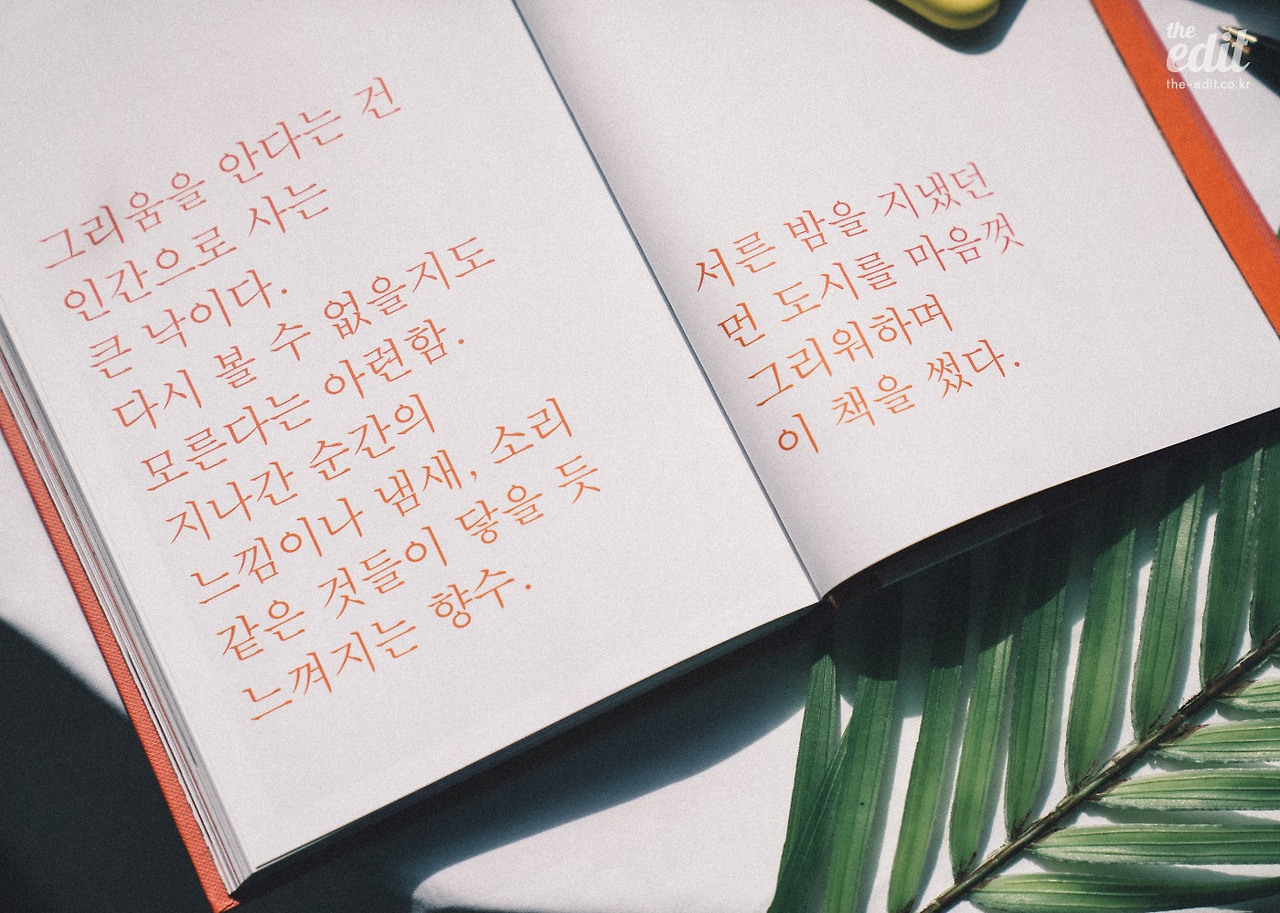 그리움을 안다는 건
인간으로 사는
큰 낙이다.
다시 볼 수 없을지도
모른다는 아련함.
지나간 순간의
느낌이나 냄새, 소리
같은 것들이 닿을 듯
느껴지는 향수.
서른 밤을 지냈던
먼 도시를 마음껏
그리워하며
이 책을 썼다.
the
edit
the-edit.co.kr